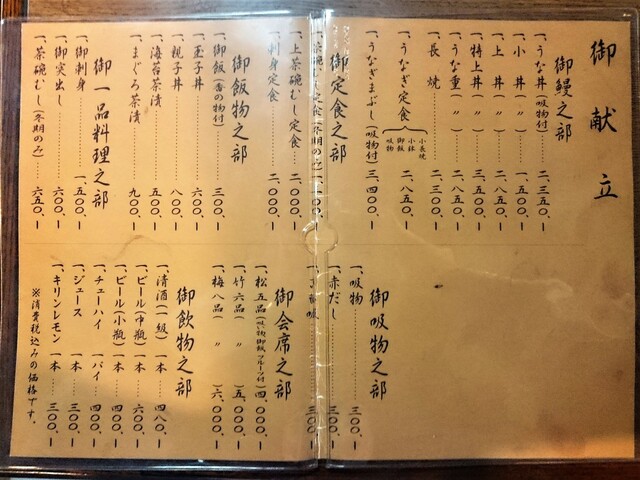 御献立
御鰻之部
一、うな丼(吸物付)……二、三五〇、ー
一、小丼(〃)……一、五〇〇、ー
一、上丼(〃)……二、八五〇、ー
一、特上丼(〃)……三、五〇〇、ー
一、うな重(〃)……二、八五〇、ー
一、長焼……二、三〇〇、ー
一、うなぎ定食 小長焼 小鉢 御飯 吸物……二、八五〇、ー
一、うなぎまぶし(吸物付)三、四〇〇、ー
御定食之部
一、茶碗むし定食(冬期のみ)
一、上茶碗むし定食……二、〇〇〇、ー
一、刺身定食……二、〇〇〇、ー
御飯物之部
一、御飯(香の物付)……三〇〇、ー
一、玉子丼……六〇〇、ー
一、親子丼……八〇〇、ー
一、海苔茶漬……五〇〇、ー
一、まぐろ茶漬……九〇〇、ー
御一品料理之部
一、御刺身……一、五〇〇、ー
一、御突出し……六〇〇、ー
一、茶碗むし(冬期のみ)……六五〇、ー
御吸物之部
一、吸物……三〇〇、ー
一、赤だし……三〇〇、ー
吸……三〇〇、ー
御会席之部
一、松五品(吸い物、御飯、フルーツ付)四、〇〇〇、ー
一、竹六品(〃)五、〇〇〇、ー
一、梅八品(〃)六、〇〇〇、ー
御飲物之部
一、清酒(一級)一本……四八〇、ー
一、ビール(中瓶)一本……六〇〇、ー
一、ビール(小瓶)一本……四〇〇、ー
一、チューハイ 一パイ……四〇〇、ー
一、ジュース 一本……三〇〇、ー
一、キリンレモン 一本……三〇〇、ー
※消費税込みの価格です。